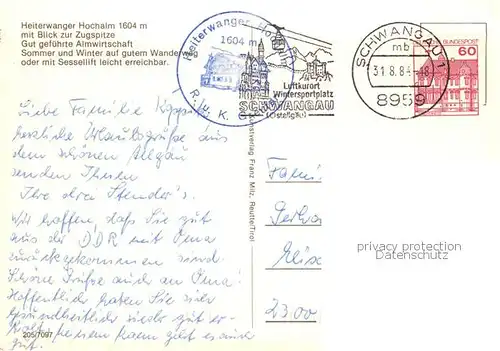 Heiterwanger Hochalm 1604 m
mit Blick zur Zugspitze
Gut geführte Almwirtschaft
Sommer und Winter auf gutem Wanderweg
oder mit Sessellift leicht erreichbar.
Heiterwanger Hochalm
1604 m
R. u. K.
Luftkurort
Wintersportplatz
SCHWANGAU
(Ostallgäu)
SCHWANGAU 1
mb
31.8.84-18
8959
BUNDESPOST
60
Liebe Familie
herzliche Urlaubsgrüße aus
dem schönen Allgäu
senden Ihnen
Ihre drei Stender's.
Wir hoffen, daß Sie gut
aus der DDR mit Oma
zurückgekommen sind.
Schöne Grüße auch an Oma!
Hoffentlich haben Sie sich
gesundheitlich wieder gut er-
es auch
gut.
Kunstverlag Franz Milz, Reutte/Tirol
Fami
Gerha
Elise
2300
privacy protection
DELCAMPE
205/7097